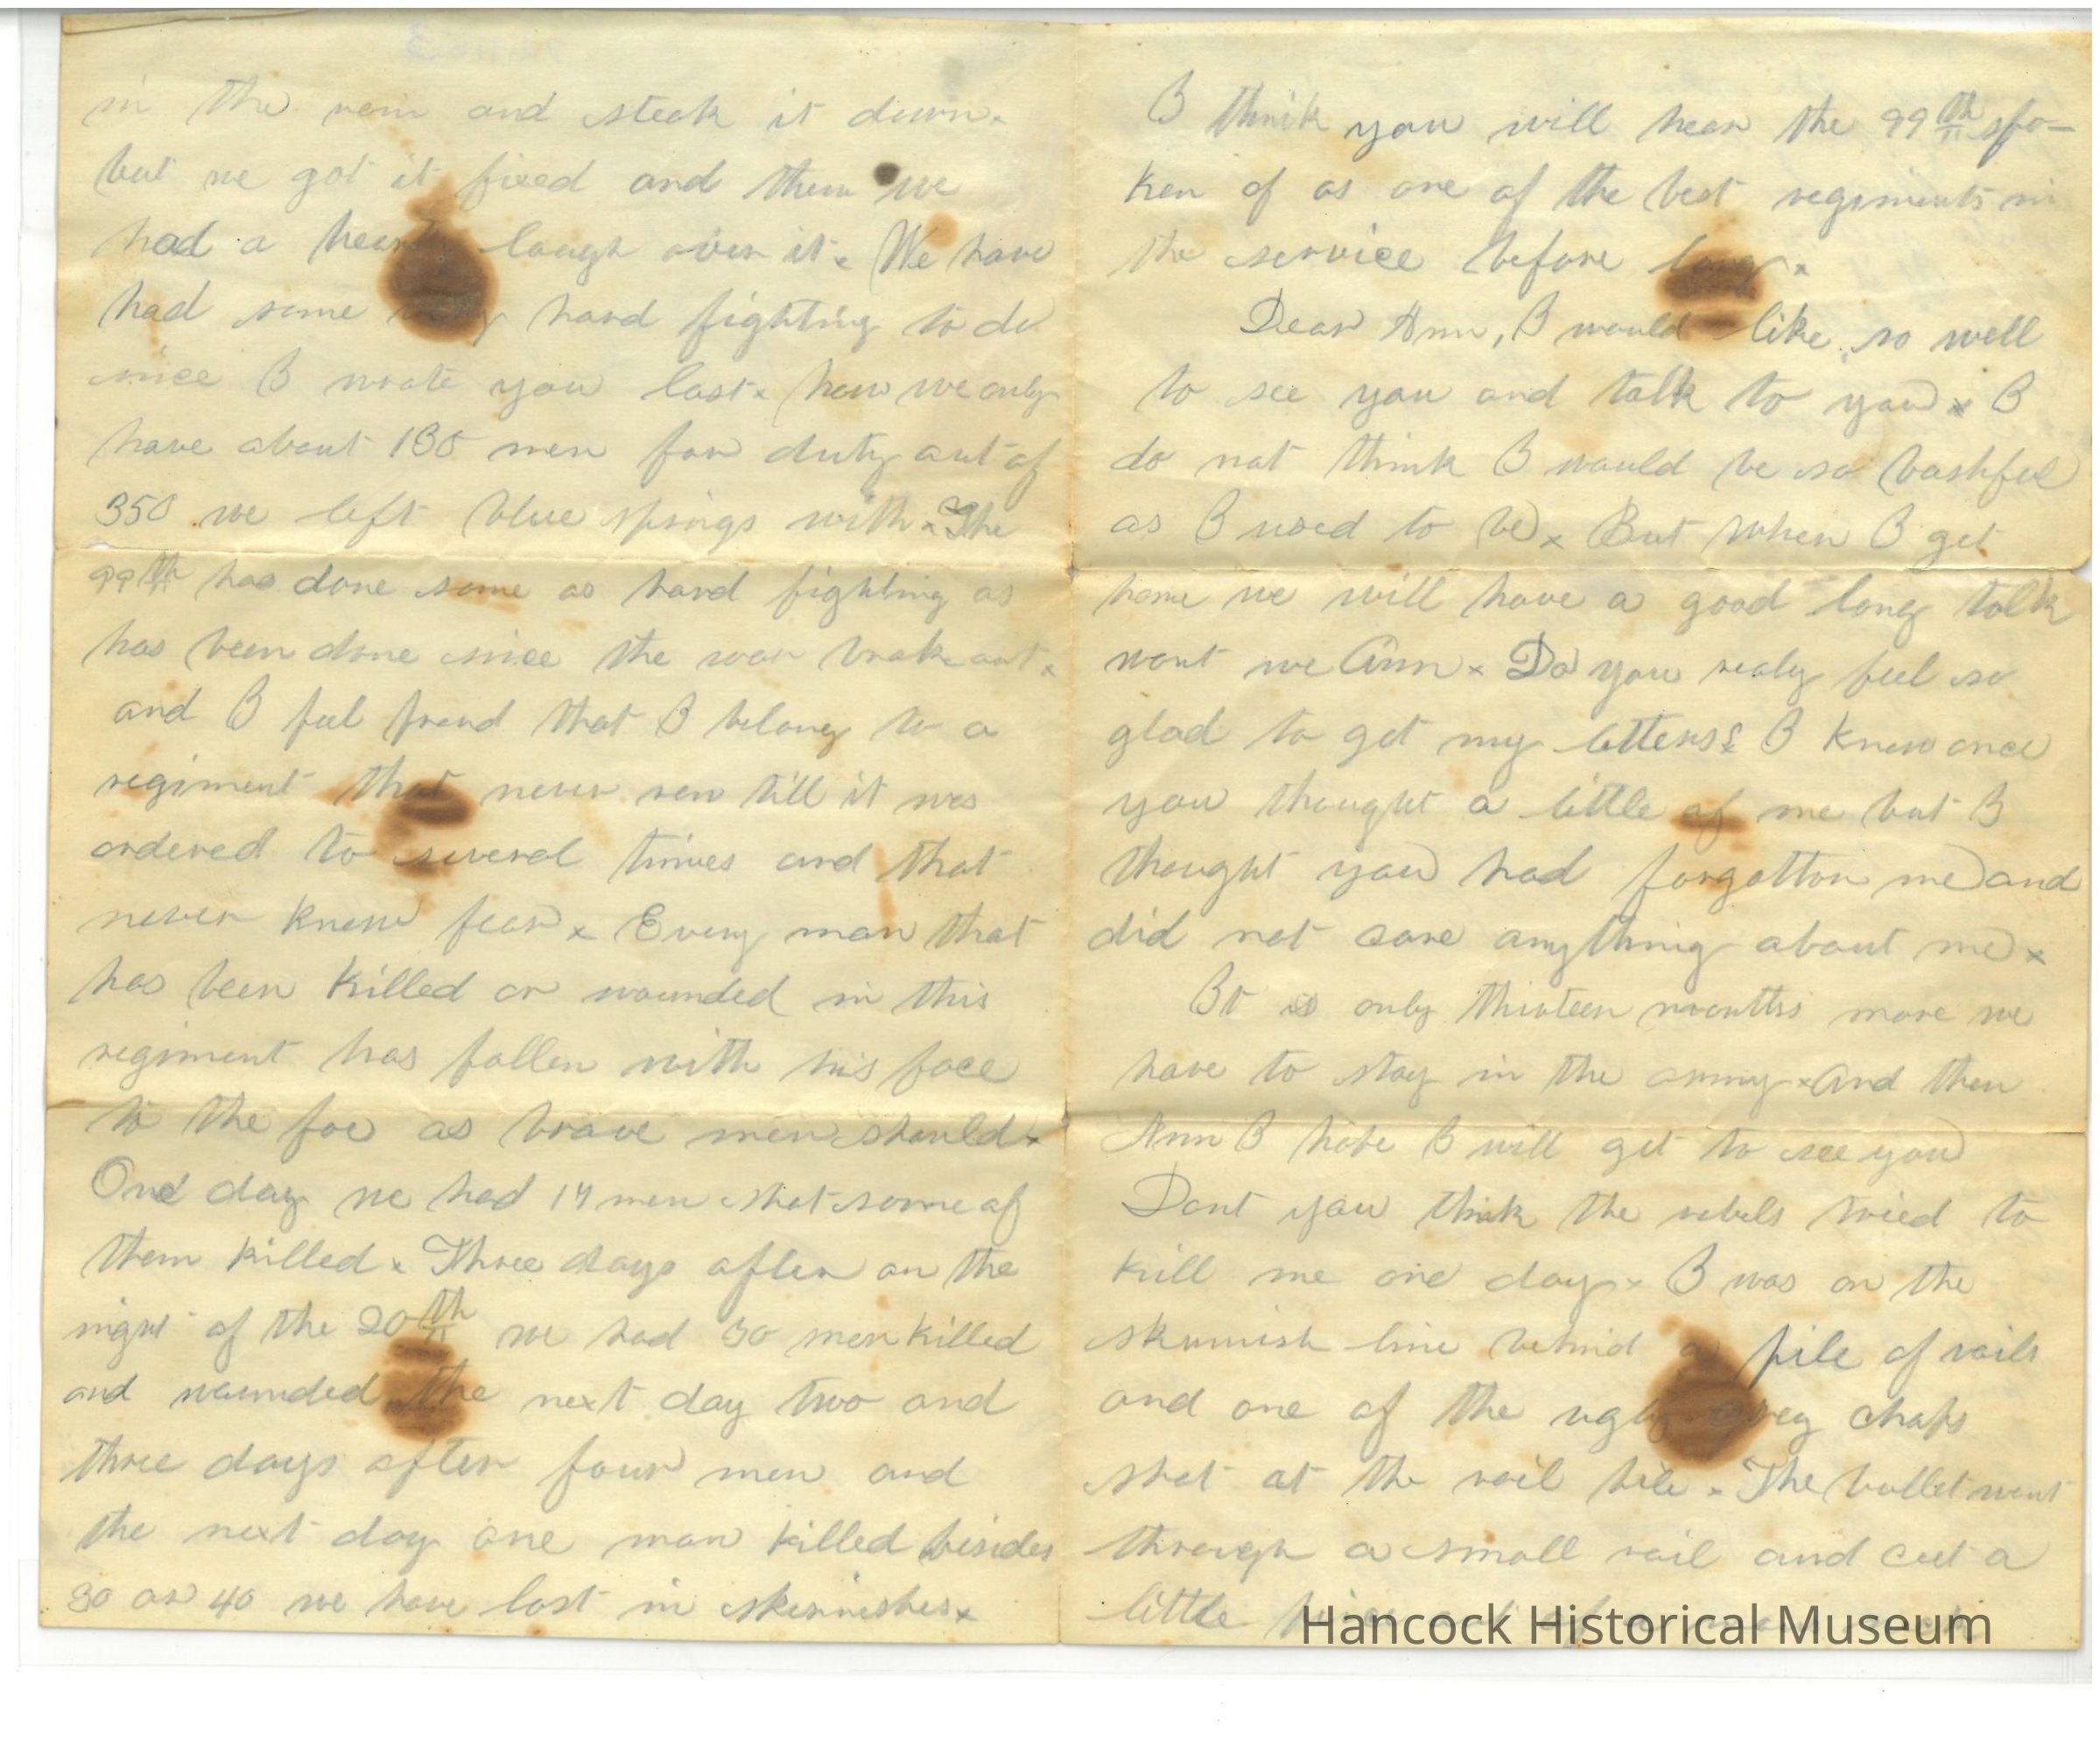 in the rain and steek it down.
but we got it fixed and then we
had a hearty laugh over it. We have
had some very hard fighting to do
since I wrote you last. how we only
have about 135 men for duty out of
350 we left blue springs with. The
99th has done some as hard fighting as
has been done since the war brake out.
and I feel proud that I belong to a
regiment that never ran till it was
ordered to several times and that
never knew fear. Every man that
has been killed or wounded in this
regiment has fallen with his face
to the foe as brave men should.
One day we had 14 men shot some of
them killed. Three days after on the
night of the 20th we had 30 men killed
and wounded the next day two and
three days after four men and
the next day one man killed besides
30 or 40 we have lost in skirmishes.
I think you will hear the 99th spo-
ken of as one of the best regiments in
the service before long.
Dear Ann, I would like so well
to see you and talk to you. I
do not think I would be so bashful
as I used to be. But when I get
home we will have a good long talk
wont we Ann. Do you realy feel so
glad to get my letters? I know once
you thought a little of me but I
thought you had forgotton me and
did not care anything about me.
It is only thirteen months more we
have to stay in the army. And then
Ann I hope I will get to see you
Dont you think the rebels tried to
kill me one day. I was on the
skirmish line behind a pile of rails
and one of the ugly grey chaps
shot at the rail pile. The bullet went
through a small rail and cut a
little
Hancock Historical Museum